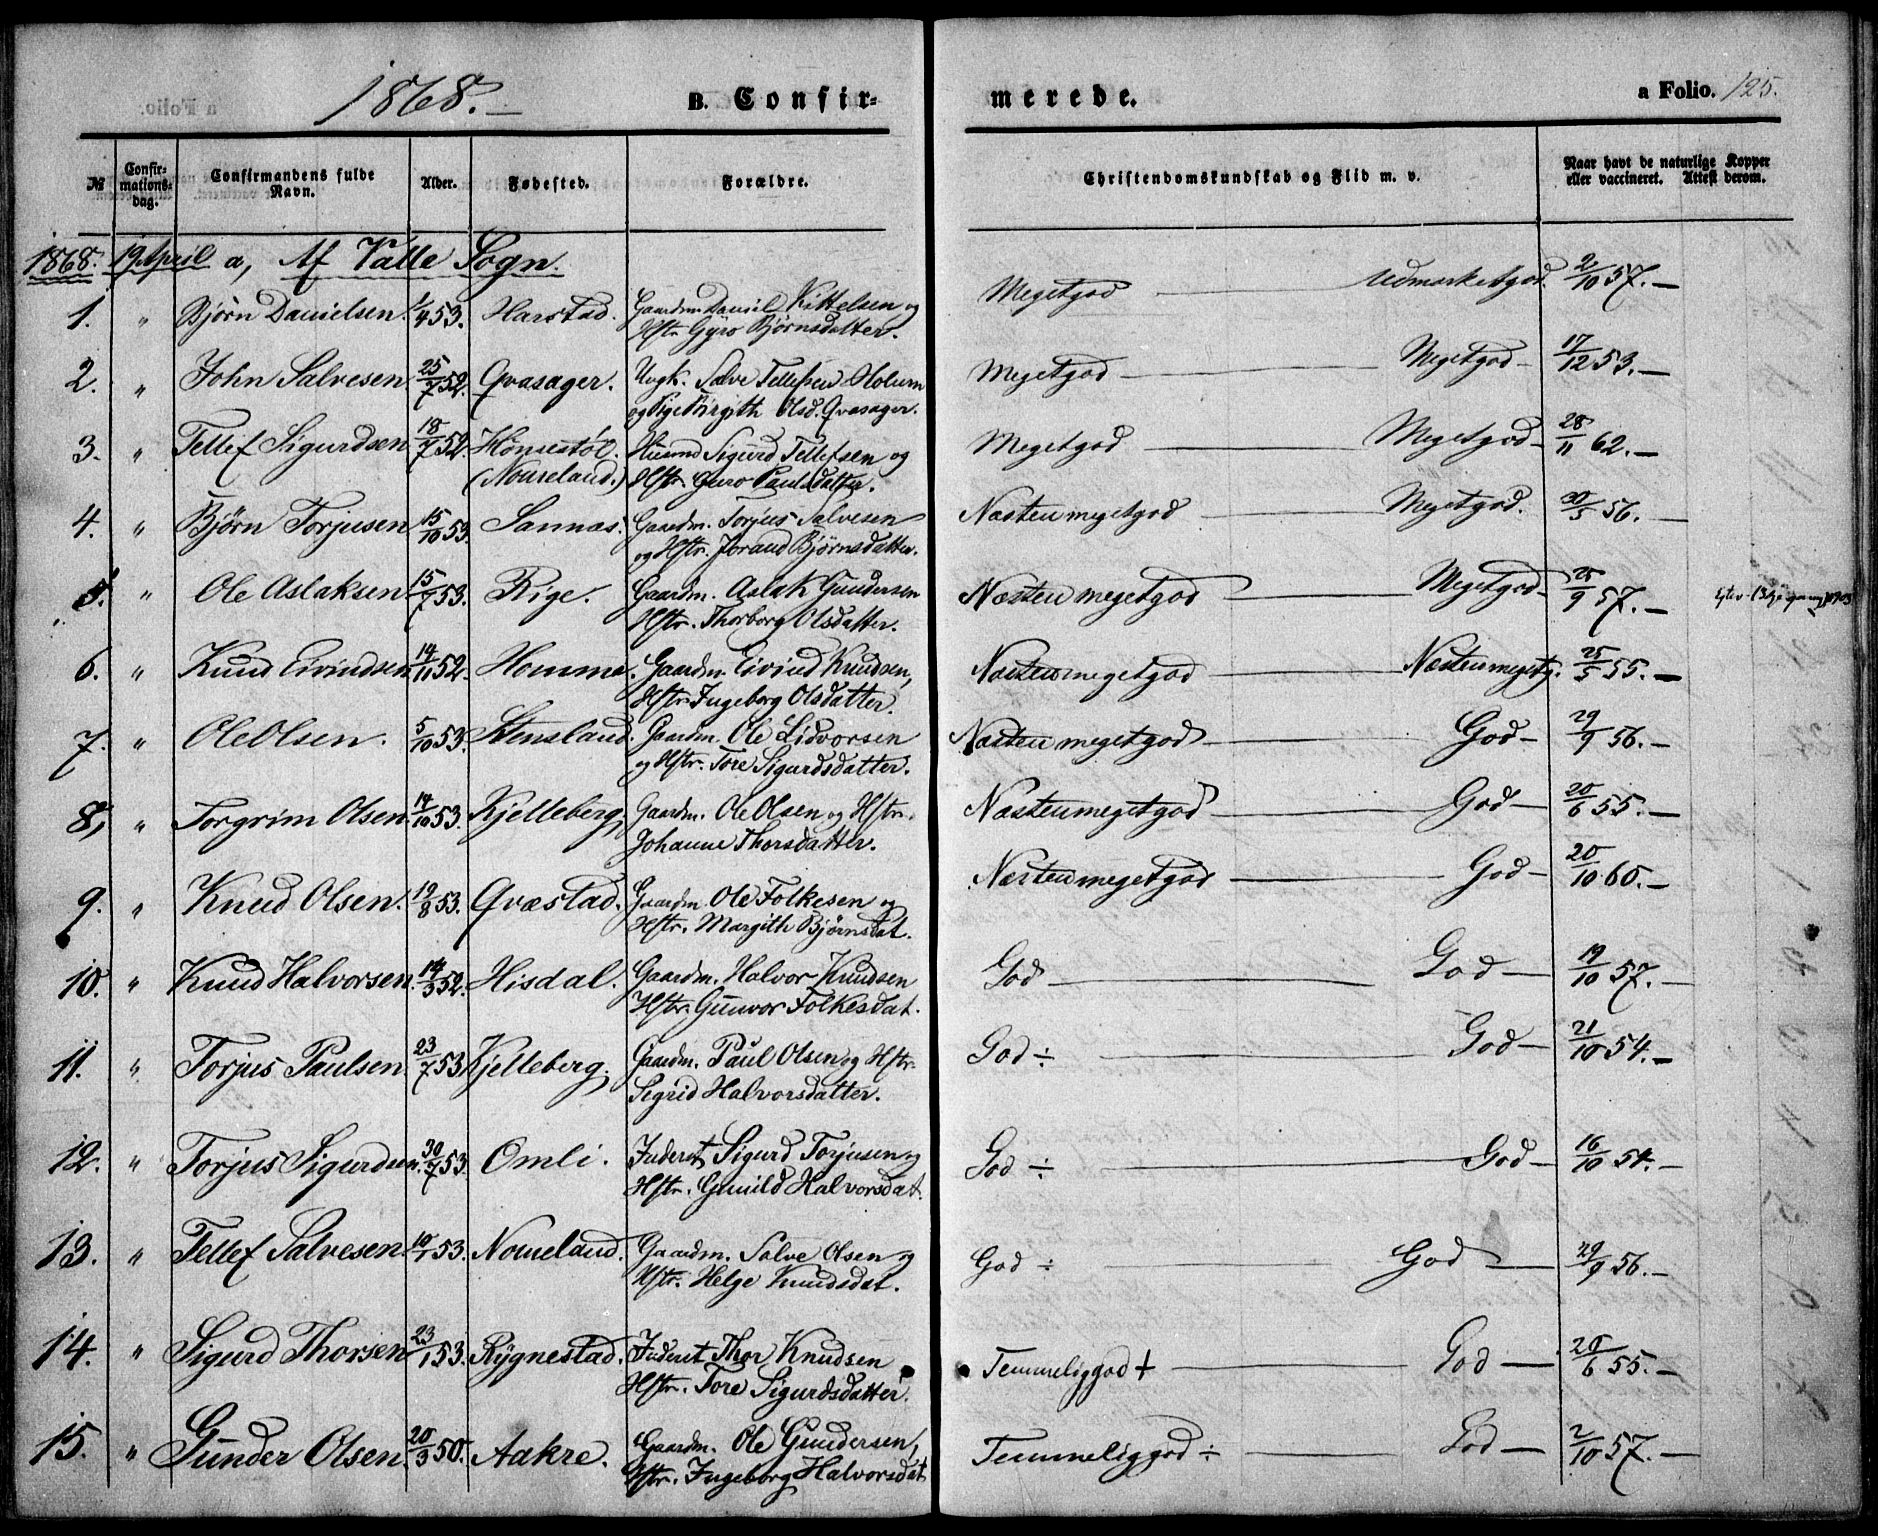 1868. —
B. Confir-
merede.
a Folio. 125.
№
Confir-
mations-
dag.
Confirmandens fulde
Navn.
Alder.
Fødested.
Forældre.
Christendomskundskab og Flid m. v.
Naar havt de naturlige Kopper
eller vaccineret. Attest derom.
1868. 19 April a, Af Valle Sogn.
1. " Bjørn Danielsen. 1/4 53. Harstad. Gaardm. Daniel Kittelsen og
Hstr. Gyro Bjørnsdatter.
Megetgod — Udmærketgod. 2/10 57. —
2. " John Salvesen 25/7 52. Qvasager. Ungk. Salve Tellefsen Holum
og Pige Birgith Olsd. Qvasager.
Megetgod — Megetgod — 17/12 53. —
3. " Tellef Sigurdsen 18/7 52. Hønsestøl. Husmd Sigurd Tellefsen og
(Nomeland.) Hstr. Guro Paulsdatter.
Megetgod — Megetgod — 28/11 62. —
4. " Bjørn Torjusen 15/10 53. Sannæs. Gaardm. Torjus Salvesen
og Hstr. Jorand Bjørnsdatter.
Næsten megetgod — Megetgod. 30/5 56. —
5. " Ole Aslaksen 15/7 53. Rige. Gaardm. Aslak Gundersen
Hstr. Thorborg Olsdatter.
Næsten megetgod — Megetgod — 25/9 57. —
6. " Knud Eivindsen 14/11 52. Homme. Gaardm. Eivind Knudsen,
Hstr. Ingeborg Olsdatter.
Næsten megetgod — Næsten megetg. 25/5 55. —
7. " Ole Olsen. 5/10 53. Stensland. Gaardm. Ole Lidvorsen
og Hstr. Tore Sigurdsdatter.
Næsten megetgod — God — 29/9 56. —
8, " Torgrim Olsen 14/10 53. Kjelleberg, Gaardm. Ole Olsen og Hstr.
Johanne Thorsdatter.
Næsten megetgod — God — 20/6 55. —
9. " Knud Olsen. 19/8 53. Qvæstad. Gaardm. Ole Folkesen og
Hstr. Margith Bjørnsdat.
Næsten megetgod — God — 20/10 60. —
10. " Knud Halvorsen. 14/3 52. Hisdal. Gaardm. Halvor Knudsen
Hstr. Gunvor Folkesdat.
God — God — 19/10 57. —
11. " Torjus Paulsen 23/7 53 Kjelleberg. Gaardm. Paul Olsen og Hstr.
Sigrid Halvorsdatter.
God ÷ — God — 21/10 54. —
12. " Torjus Sigurdsen. 30/7 53. Omli. Inderst Sigurd Torjusen og
Hstr. Gunild Halvorsdat.
God ÷ — God — 16/10 54. —
13. " Tellef Salvesen. 10/1 53. Nomeland. Gaardm. Salve Olsen og
Hstr. Helge Knudsdat.
God ÷ — God — 29/9 56. —
14. " Sigurd Thorsen 23/1 53. Rygnestad. Inderst Thor Knudsen
Hstr. Tore Sigurdsdatter.
Temmeliggod + — God — 20/6 55. —
15. " Gunder Olsen. 20/3 50. Aakre. Gaardm. Ole Gundersen,
Hstr. Ingeborg Halvorsdat
Temmeliggod ÷ — God — 2/10 57. —